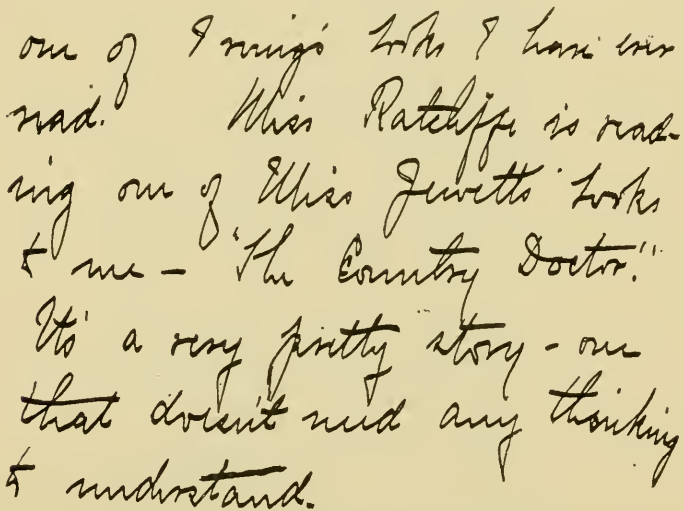 one of Irving's books I have ever
read. Miss Ratcliffe is read-
ing one of Miss Jewett's books
to me — "The Country Doctor."
It's a very pretty story - one
that doesn't need any thinking
to understand.